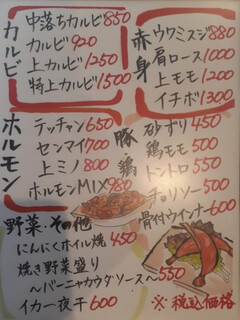 カルビ
中落ちカルビ 850
カルビ 920
上カルビ 1250
特上カルビ 1500
赤身
ウワミスジ 880
肩ロース 1000
上モモ 1200
イチボ 1300
ホルモン
テッチャン 650
センマイ 700
上ミノ 800
ホルモンMIX 980
豚 鶏
砂ずり 450
鶏モモ 500
トントロ 550
チョリソー 500
骨付ウインナー 600
野菜・その他
にんにくホイル焼 450
焼き野菜盛り
〜バーニャカウダソース〜 550
イカ一夜干 600
※ 税込価格